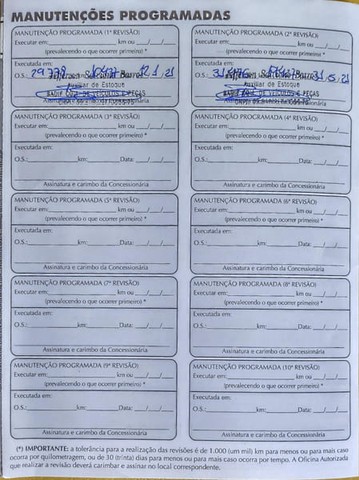 MANUTENÇÕES PROGRAMADAS
MANUTENÇÃO PROGRAMADA (1ª REVISÃO)
Executar em: km ou / /
(prevalecendo o que ocorrer primeiro) *
Executada em:
O.S.: 12.1.21
Jefferson Barros
Auxiliar de Estoque
Assinatura e carimbo da Concessionária
MANUTENÇÃO PROGRAMADA (2ª REVISÃO)
Executar em: km ou / /
(prevalecendo o que ocorrer primeiro) *
Executada em:
O.S.: 31.5.21
Jefferson Barros
Auxiliar de Estoque
Assinatura e carimbo da Concessionária
MANUTENÇÃO PROGRAMADA (3ª REVISÃO)
Executar em: km ou / /
(prevalecendo o que ocorrer primeiro) *
Executada em:
O.S.: km: Data: / /
Assinatura e carimbo da Concessionária
MANUTENÇÃO PROGRAMADA (4ª REVISÃO)
Executar em: km ou / /
(prevalecendo o que ocorrer primeiro) *
Executada em:
O.S.: km: Data: / /
Assinatura e carimbo da Concessionária
MANUTENÇÃO PROGRAMADA (5ª REVISÃO)
Executar em: km ou / /
(prevalecendo o que ocorrer primeiro) *
Executada em:
O.S.: km: Data: / /
Assinatura e carimbo da Concessionária
MANUTENÇÃO PROGRAMADA (6ª REVISÃO)
Executar em: km ou / /
(prevalecendo o que ocorrer primeiro) *
Executada em:
O.S.: km: Data: / /
Assinatura e carimbo da Concessionária
MANUTENÇÃO PROGRAMADA (7ª REVISÃO)
Executar em: km ou / /
(prevalecendo o que ocorrer primeiro) *
Executada em:
O.S.: km: Data: / /
Assinatura e carimbo da Concessionária
MANUTENÇÃO PROGRAMADA (8ª REVISÃO)
Executar em: km ou / /
(prevalecendo o que ocorrer primeiro) *
Executada em:
O.S.: km: Data: / /
Assinatura e carimbo da Concessionária
MANUTENÇÃO PROGRAMADA (9ª REVISÃO)
Executar em: km ou / /
(prevalecendo o que ocorrer primeiro) *
Executada em:
O.S.: km: Data: / /
Assinatura e carimbo da Concessionária
MANUTENÇÃO PROGRAMADA (10ª REVISÃO)
Executar em: km ou / /
(prevalecendo o que ocorrer primeiro) *
Executada em:
O.S.: km: Data: / /
Assinatura e carimbo da Concessionária
(*) IMPORTANTE: a tolerância para a realização das revisões é de 1.000 (um mil) km para menos ou para mais caso
ocorra por quilometragem, ou de 30 (trinta) dias para menos ou para mais caso ocorra por tempo. A Oficina Autorizada
que realizar a revisão deverá carimbar e assinar no local correspondente.